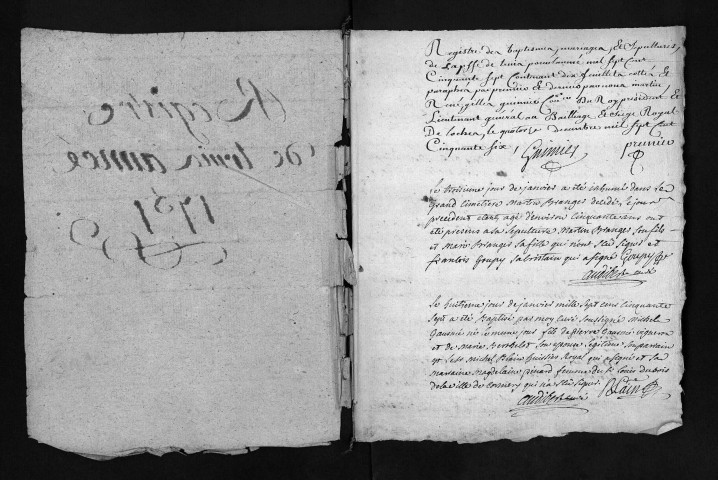 Registre
de truis année
1757
Registre des baptismes, mariages, et Sepultures,
de La psse de truis pour l'année mil sept cent
Cinquante sept Contenant dix feuillets cottés et
paraphés par premier et dernier par nous martin
René gilles Con.er Du Roy president et
Lieutenant general au Bailliage et siege Royal
De Loches, le quatorze decembre mil sept cent
Cinquante six
premier
Le troisieme jour de janvier a été inhumé dans Le
Grand Cimetière Martin Branger decédé le jour
precedent etant agé d'environ cinquante ans ont
été presens a sa sepulture Martin Branger son fils
et Marie Branger sa fille qui n'ont sceu signer et
françois Goupy sabristain qui a signé Goupy
Le huitieme jour de janvier mille sept cens cinquante
sept a été baptisé par moy curé soussigné michel
né le meme jour fils de pierre vigneron
et de Marie Berthelot son epouse legitime son parrain
Michel Blain huissier Royal qui a signé et sa
maraine Magdelaine pinard femme du Sr Louis dubois
de la ville de cormery qui n'a sceu signer
Blain